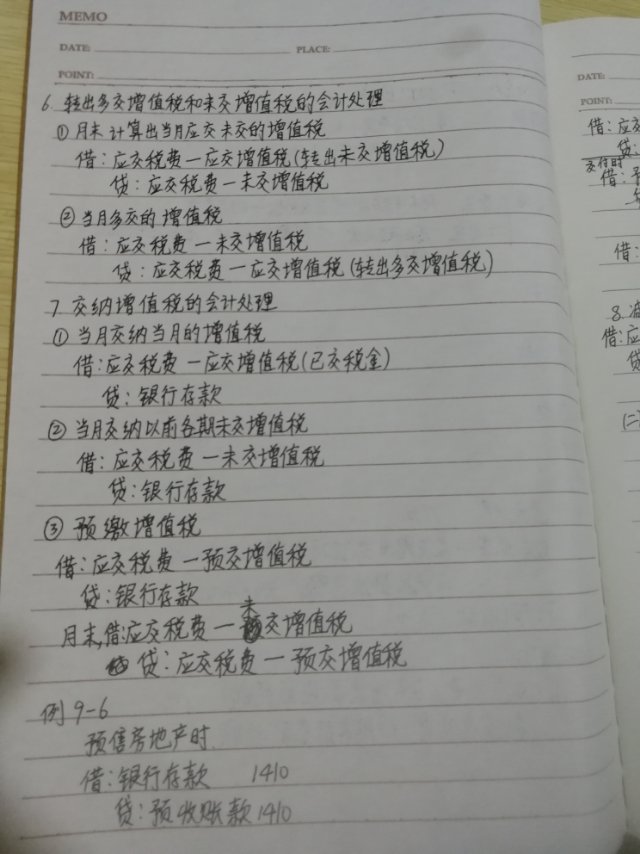 MEMO
DATE:
PLACE:
POINT:
6. 转出多交增值税和未交增值税的会计处理
① 月末计算出当月应交未交的增值税
借：应交税费—应交增值税(转出未交增值税)
贷：应交税费—未交增值税
② 当月多交的增值税
借：应交税费—未交增值税
贷：应交税费—应交增值税(转出多交增值税)
7. 交纳增值税的会计处理
① 当月交纳当月的增值税
借：应交税费—应交增值税(已交税金)
贷：银行存款
② 当月交纳以前各期未交增值税
借：应交税费—未交增值税
贷：银行存款
③ 预缴增值税
借：应交税费—预交增值税
贷：银行存款
月末，借：应交税费—未交增值税
贷：应交税费—预交增值税
例9-6
预售房地产时
借：银行存款 1410
贷：预收账款 1410
DATE:
POINT:
借：应交
贷：
交付时
借：预
借：
8.
借：应
贷
(二)